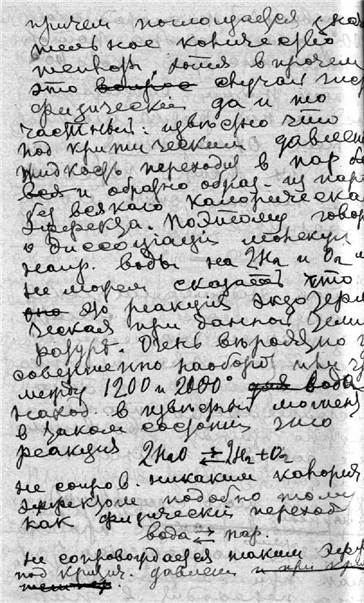 причем поглощается
тельное количество
теплоты, хотя впрочем
это вопрос случай
физический да и то
частный: извѣстно что
под критическим давлен
жидкость переходит в пар
и обратно образ. из пара
без всякаго калорическа
эффекта. Поэтому говор
о диссоціаціи молекул
напр. воды на 2H2 и O2
не можем сказать что
оно это реакция экзотерми
ческая при данной темпе
ратурѣ. Очень вѣроятно
совершенно наоборот при
между 1200 и 2000° для вода
наход. в извѣстный момент
в таком состоянии что
реакция 2H2O ⇄ 2H2+O2
не сопров. никаким калория
эффектом подобно тому
как физический переход
вода ⇄ пар.
не сопровождается таким
под критич. давлен и при